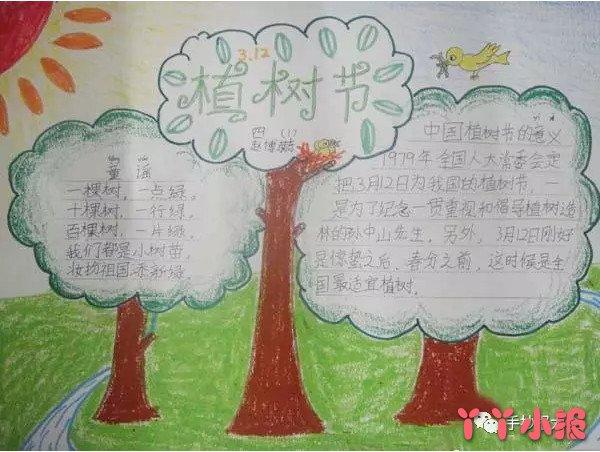 3.12
植树节
四(1)
童谣
一棵树,一点绿。
十棵树,一行绿。
百棵树,一片绿。
我们都是小树苗,
妆扮祖国添新绿
中国植树节的意义
1979年全国人大常委会定
把3月12日为我国的植树节,一
是为了纪念一贯重视和倡导植树造
林的孙中山先生,另外,3月12日刚好
是惊蛰之后,春分之前,这时候是全
国最适宜植树。
丫丫小报